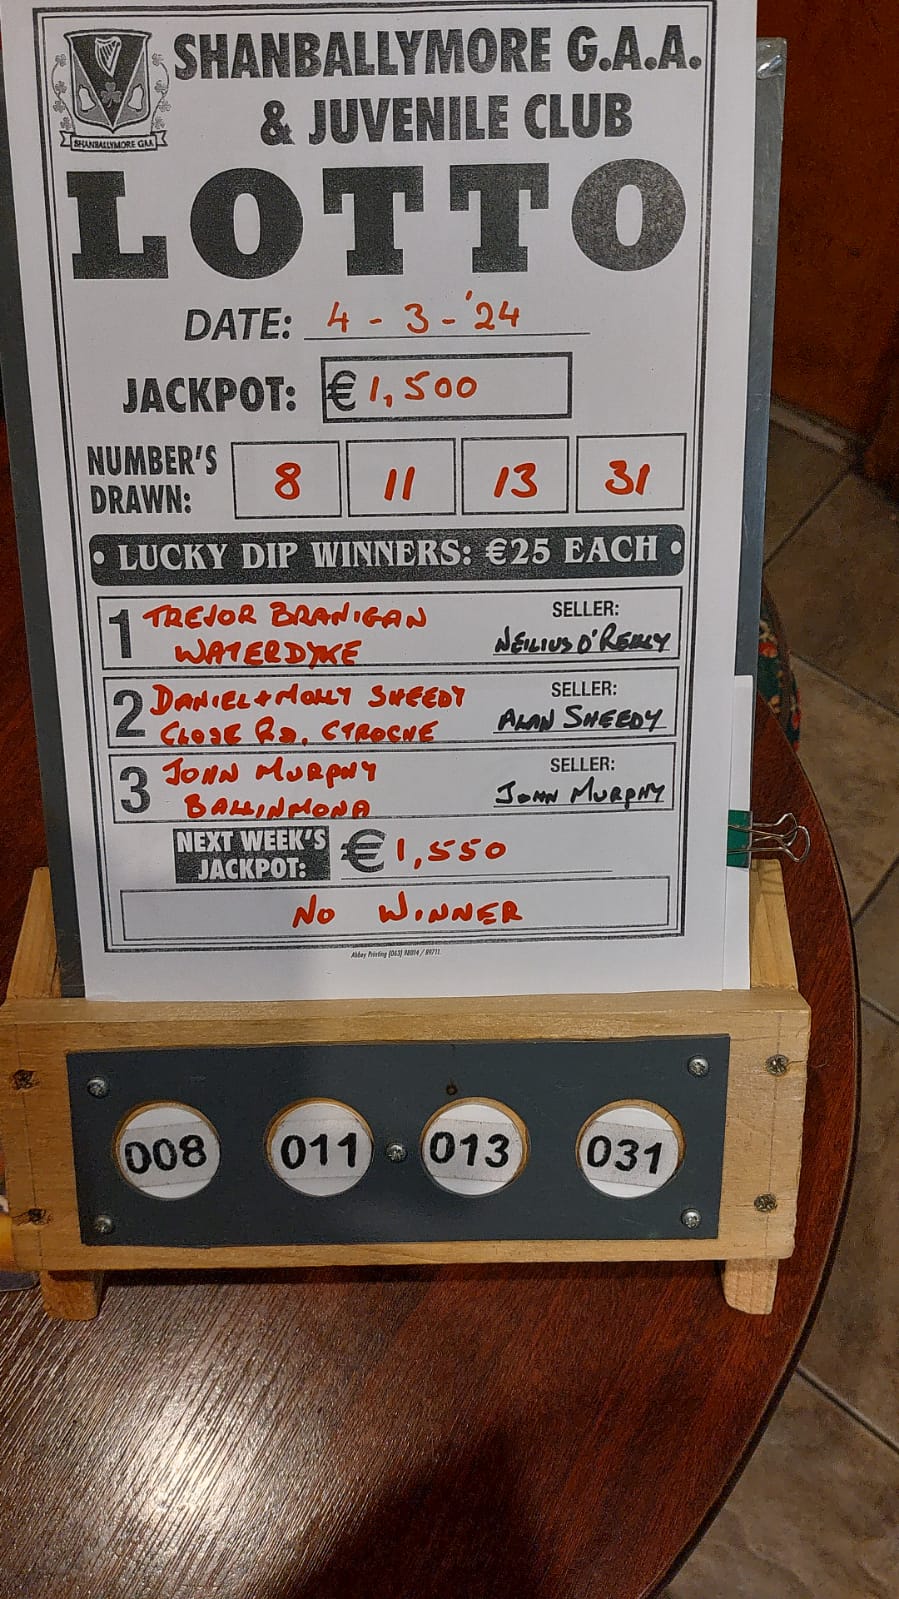 SHANBALLYMORE G.A.A.
& JUVENILE CLUB
SHANBALLYMORE GAA
LOTTO
DATE: 4 - 3 - '24
JACKPOT: €1,500
NUMBER'S DRAWN: 8 11 13 31
• LUCKY DIP WINNERS: €25 EACH •
1 TREVOR BRANIGAN SELLER:
WATERDYKE NEILIUS O'REILLY
2 DANIEL + MOLLY SHEEDY SELLER:
CLOSE RD, CTROCHE ALAN SHEEDY
3 JOHN MURPHY SELLER:
BALLINMONA JOHN MURPHY
NEXT WEEK'S JACKPOT: €1,550
NO WINNER
Abbey Printing (063) 98014 / 89711
008 011 013 031